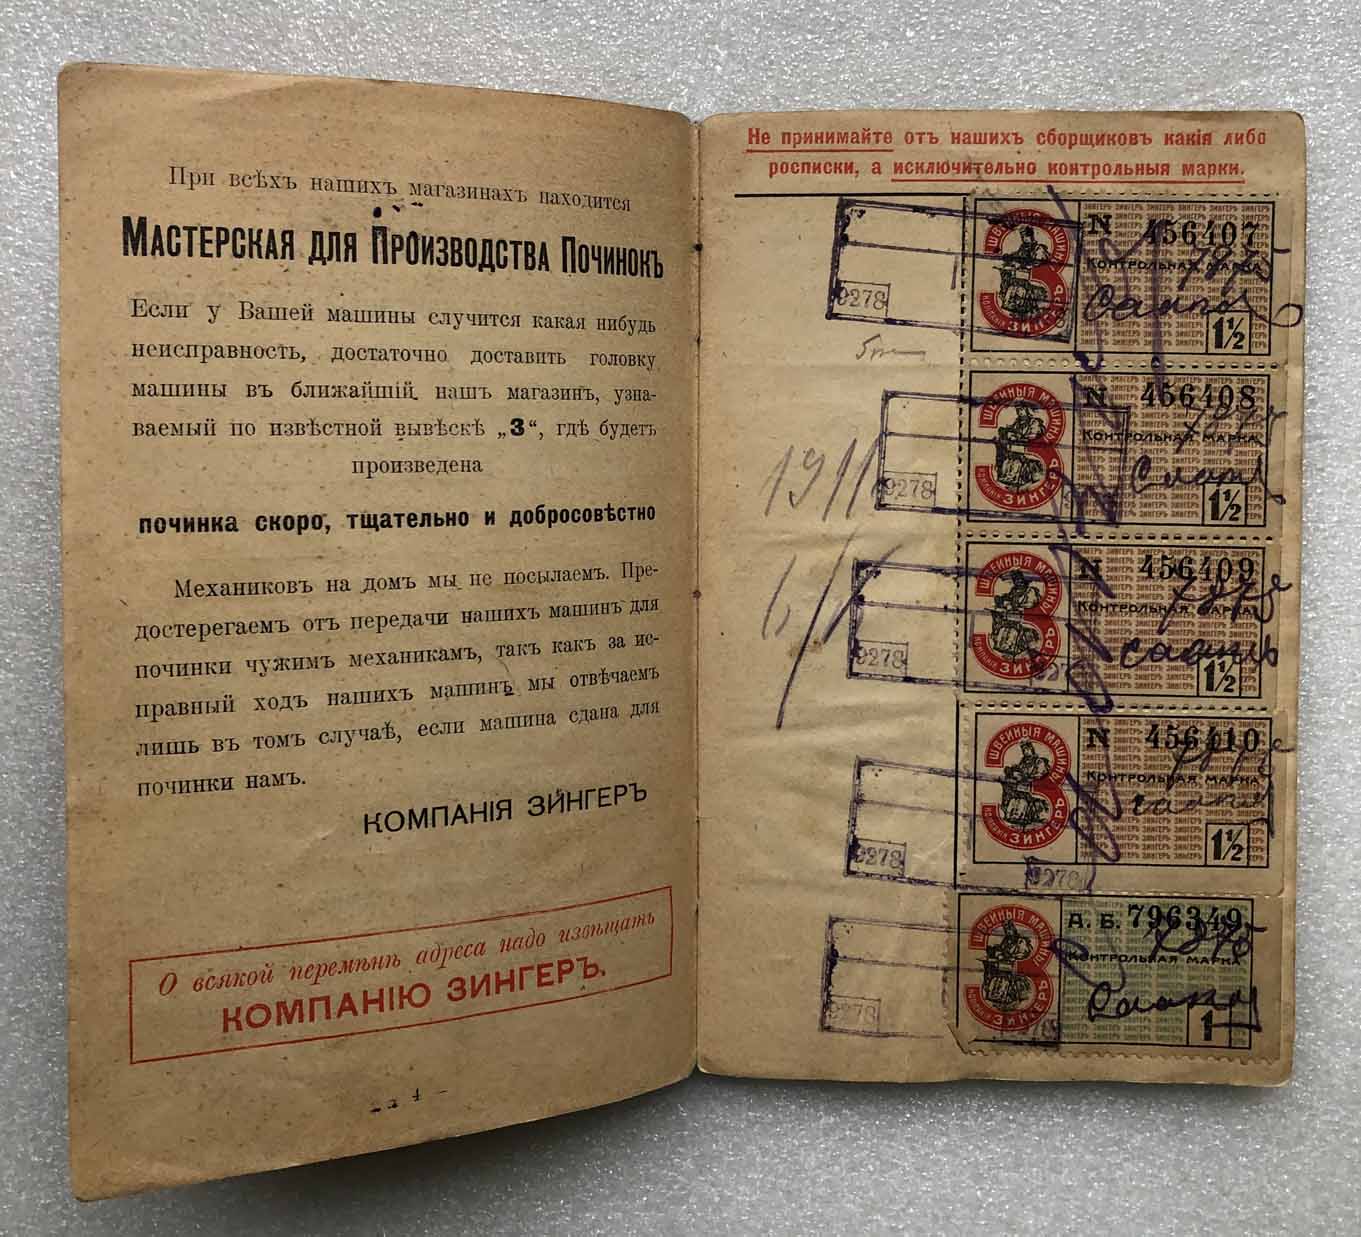 При всѣхъ нашихъ магазинахъ находится
МАСТЕРСКАЯ ДЛЯ ПРОИЗВОДСТВА ПОЧИНОКЪ
Если у Вашей машины случится какая нибудь
неисправность, достаточно доставить головку
машины въ ближайшій нашъ магазинъ, узна-
ваемый по извѣстной вывѣскѣ „З“, гдѣ будетъ
произведена
починка скоро, тщательно и добросовѣстно
Механиковъ на домъ мы не посылаемъ. Пре-
достерегаемъ отъ передачи нашихъ машинъ для
починки чужимъ механикамъ, такъ какъ за ис-
правный ходъ нашихъ машинъ мы отвѣчаемъ
лишь въ томъ случаѣ, если машина сдана для
починки намъ.
КОМПАНІЯ ЗИНГЕРЪ
О всякой перемѣнѣ адреса надо извѣщать
КОМПАНІЮ ЗИНГЕРЪ.
4
Не принимайте отъ нашихъ сборщиковъ какія либо
росписки, а исключительно контрольныя марки.
9278
ШВЕЙНЫЯ МАШИНЫ
КОМПАНІИ ЗИНГЕРЪ
N 456407
КОНТРОЛЬНАЯ МАРКА
1½
9278
ШВЕЙНЫЯ МАШИНЫ
КОМПАНІИ ЗИНГЕРЪ
N 456408
КОНТРОЛЬНАЯ МАРКА
1½
1911
9278
ШВЕЙНЫЯ МАШИНЫ
КОМПАНІИ ЗИНГЕРЪ
N 456409
КОНТРОЛЬНАЯ МАРКА
1½
9278
9278
ШВЕЙНЫЯ МАШИНЫ
КОМПАНІИ ЗИНГЕРЪ
N 456410
КОНТРОЛЬНАЯ МАРКА
1½
9278
ШВЕЙНЫЯ МАШИНЫ
КОМПАНІИ ЗИНГЕРЪ
А. Б. 796349
КОНТРОЛЬНАЯ МАРКА
1